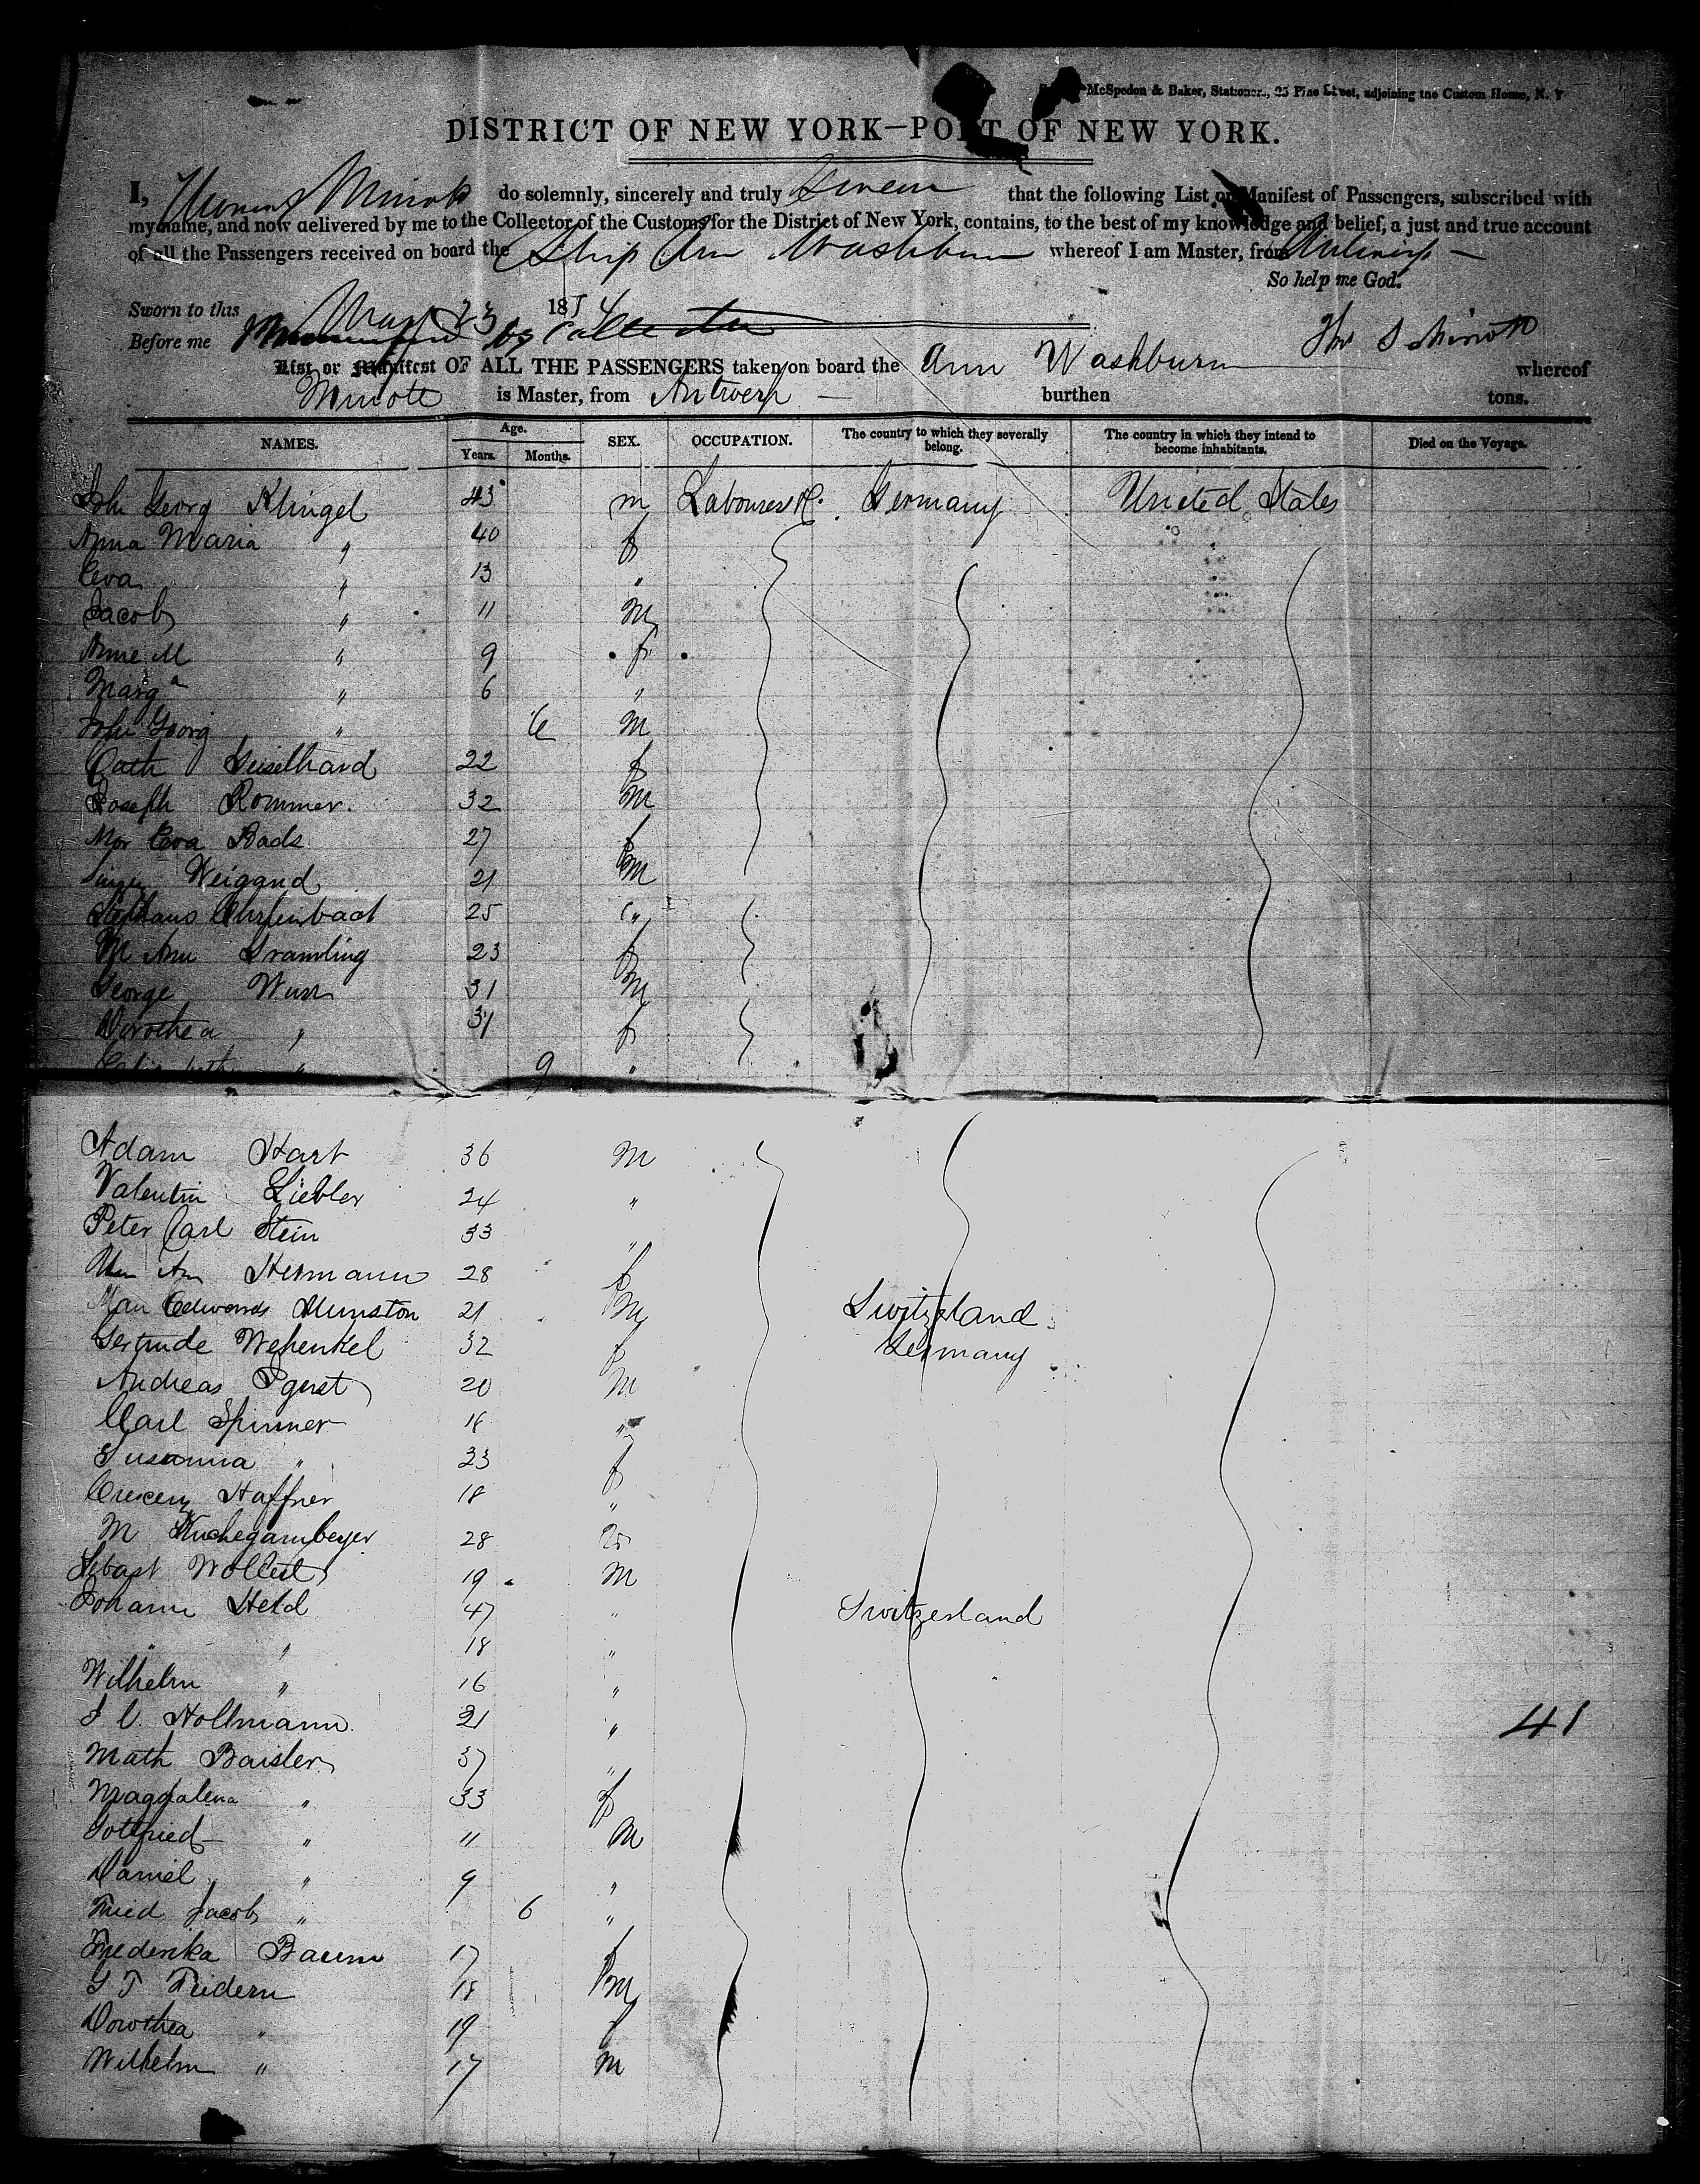 McSpedon & Baker, Stationers, 25 Pine Street, adjoining the Custom House, N. Y.
DISTRICT OF NEW YORK—PORT OF NEW YORK.
I, Thomas Minott do solemnly, sincerely and truly Swear that the following List or Manifest of Passengers, subscribed with
my name, and now delivered by me to the Collector of the Customs for the District of New York, contains, to the best of my knowledge and belief, a just and true account
of all the Passengers received on board the Ship Ann Washburn whereof I am Master, from Antwerp —
So help me God.
Sworn to this 23 1854
Before me Thos S Minott
List or Manifest OF ALL THE PASSENGERS taken on board the Ann Washburn whereof
Minott is Master, from Antwerp — burthen tons.
NAMES. Age. Years. Months. SEX. OCCUPATION. The country to which they severally belong. The country in which they intend to become inhabitants. Died on the Voyage.
John Georg Klingel 43 m Labourers Germany United States
Anna Maria " 40 f
Eva " 13 "
Jacob " 11 M
Anne M " 9 f
Marga " 6 "
John Georg " 6 M
Cath Geiselhard 22 f
Joseph Rommer. 32 M
Mar Eva Bads 27 f
Weigand 21 M
Stephans 25 "
M Ann Gramling 23 f
George Wurr 31 M
Dorothea " 31 f
" 9 "
Adam Hart 36 M
Valentin Liebler 24 "
Peter Carl Stein 33 "
Hermann 28 f
Edwards Munston 21 M Switzerland
Gertrude Wehenkel 32 f Germany
Andreas 20 M
Carl Spinner 18 "
Susanna " 23 f
Crescenz Haffner 18 "
M Kuchegambeyer 28 "
Sebast Wollert 19 M
Johann Held 47 " Switzerland
" " 18 "
Wilhelm " 16 "
J C. Hollmann. 21 "
Math Baisler 37 "
Magdalena " 33 f
Gottfried " 11 M
Daniel " 9 "
Fried Jacob " 6 "
Frederika Baum 17 f
G T Friedern 18 M
Dorothea " 19 f
Wilhelm " 17 M
41